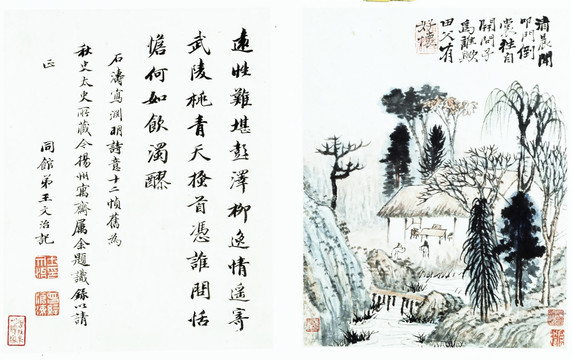 清晨聞
叩門倒
裳往自
開問子
為誰歟
田父有
好懷
遠性難堪彭澤柳逸情遙寄
武陵桃青天搔首憑誰問恬
憺何如飲濁醪
石濤寫淵明詩意十二幀舊為
秋史太史所藏今揚州寓齋屬余題識錄以請
正
同館弟王文治記